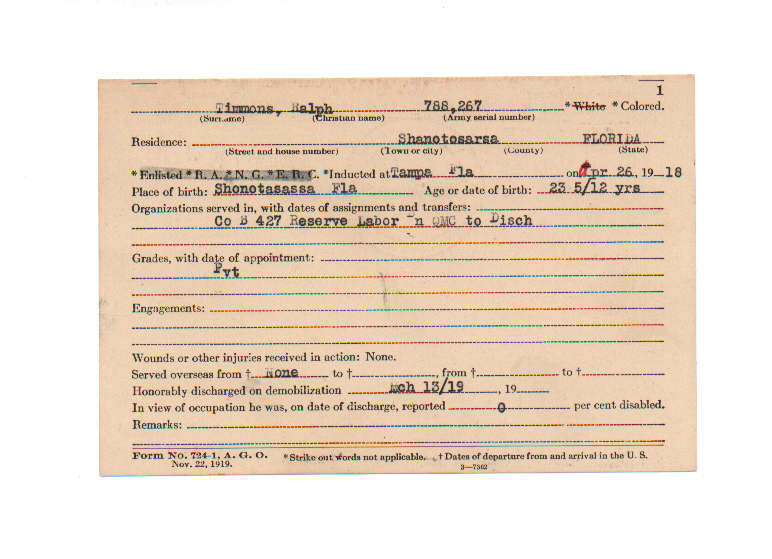 1
Timmons, Ralph 788,267 * White * Colored.
(Surname) (Christian name) (Army serial number)
Residence: Shanotosarsa FLORIDA
(Street and house number) (Town or city) (County) (State)
* Enlisted * R. A. * N. G. * E. R. C. *Inducted at Tampa Fla on Apr 26, 19 18
Place of birth: Shonotasassa Fla Age or date of birth: 23 5/12 yrs
Organizations served in, with dates of assignments and transfers:
Co B 427 Reserve Labor n QMC to Disch
Grades, with date of appointment:
Pvt
Engagements:
Wounds or other injuries received in action: None.
Served overseas from † None to †, from † to †
Honorably discharged on demobilization Mch 13/19, 19
In view of occupation he was, on date of discharge, reported 0 per cent disabled.
Remarks:
Form No. 724-1, A. G. O. *Strike out words not applicable. † Dates of departure from and arrival in the U. S.
Nov. 22, 1919. 3—7302